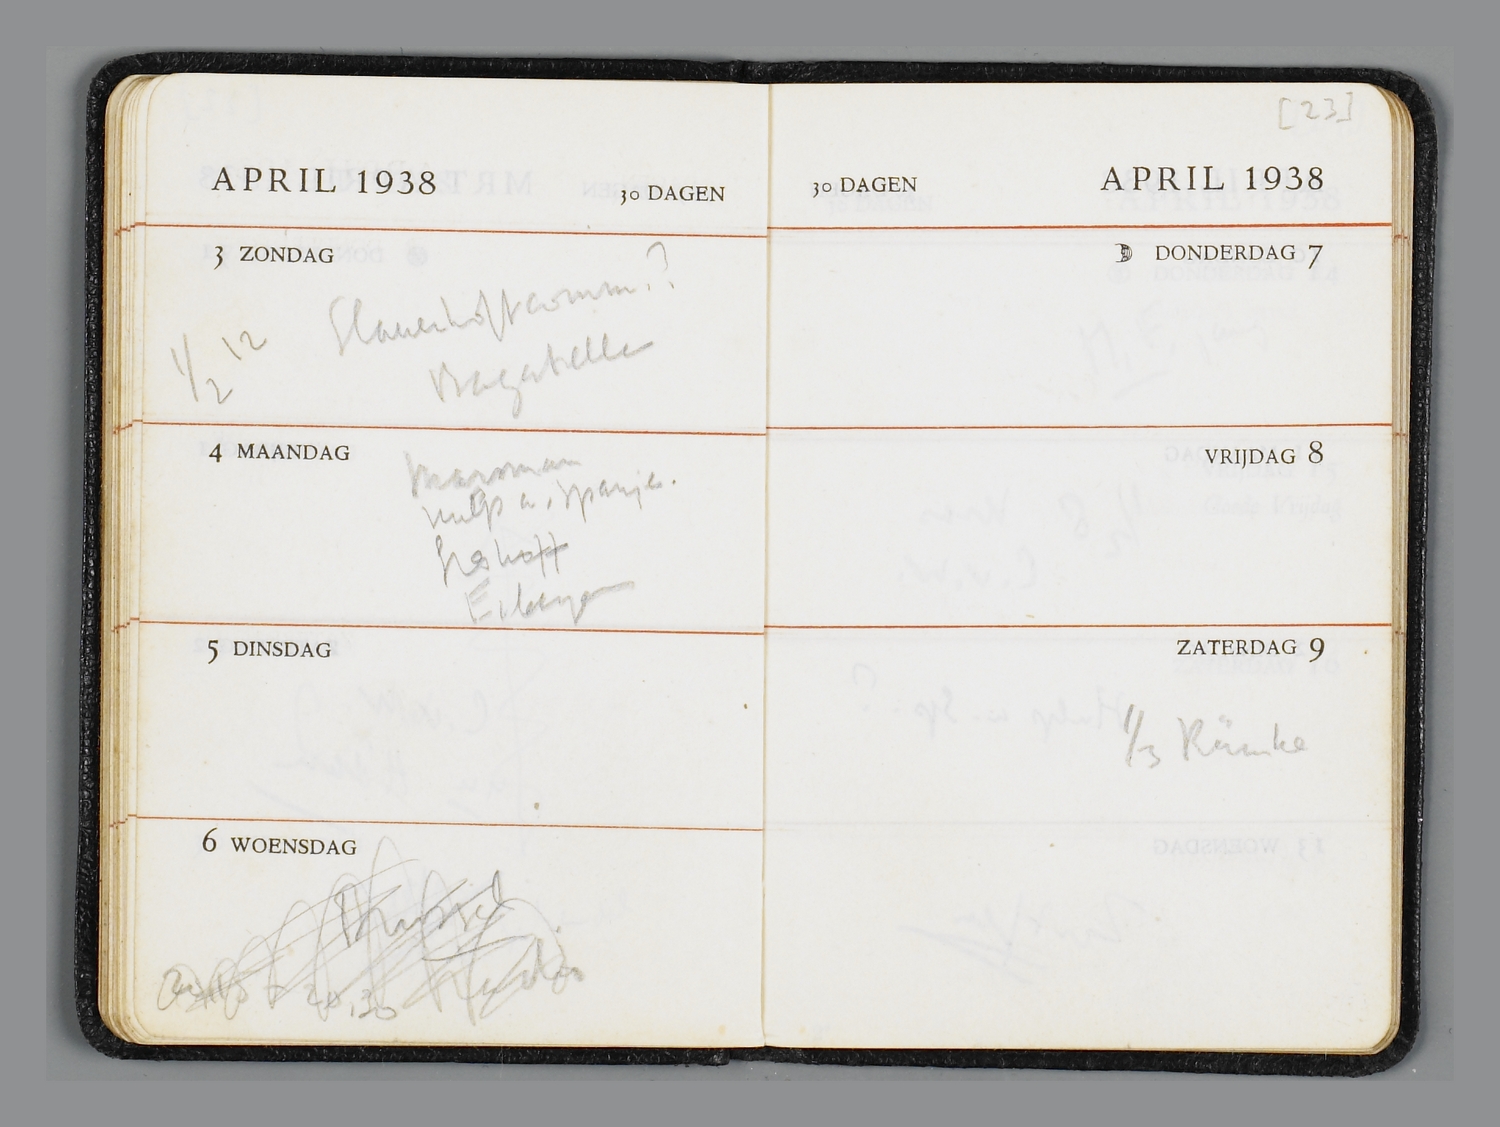 APRIL 1938
30 DAGEN
3 ZONDAG
Slauerhoffcomm.?
1/2 12
Bagatelle
4 MAANDAG
Marsman
hulp a. Spanje.
Greshoff
5 DINSDAG
6 WOENSDAG
20,30
[23]
30 DAGEN
APRIL 1938
DONDERDAG 7
VRIJDAG 8
ZATERDAG 9
1/3 Rümke